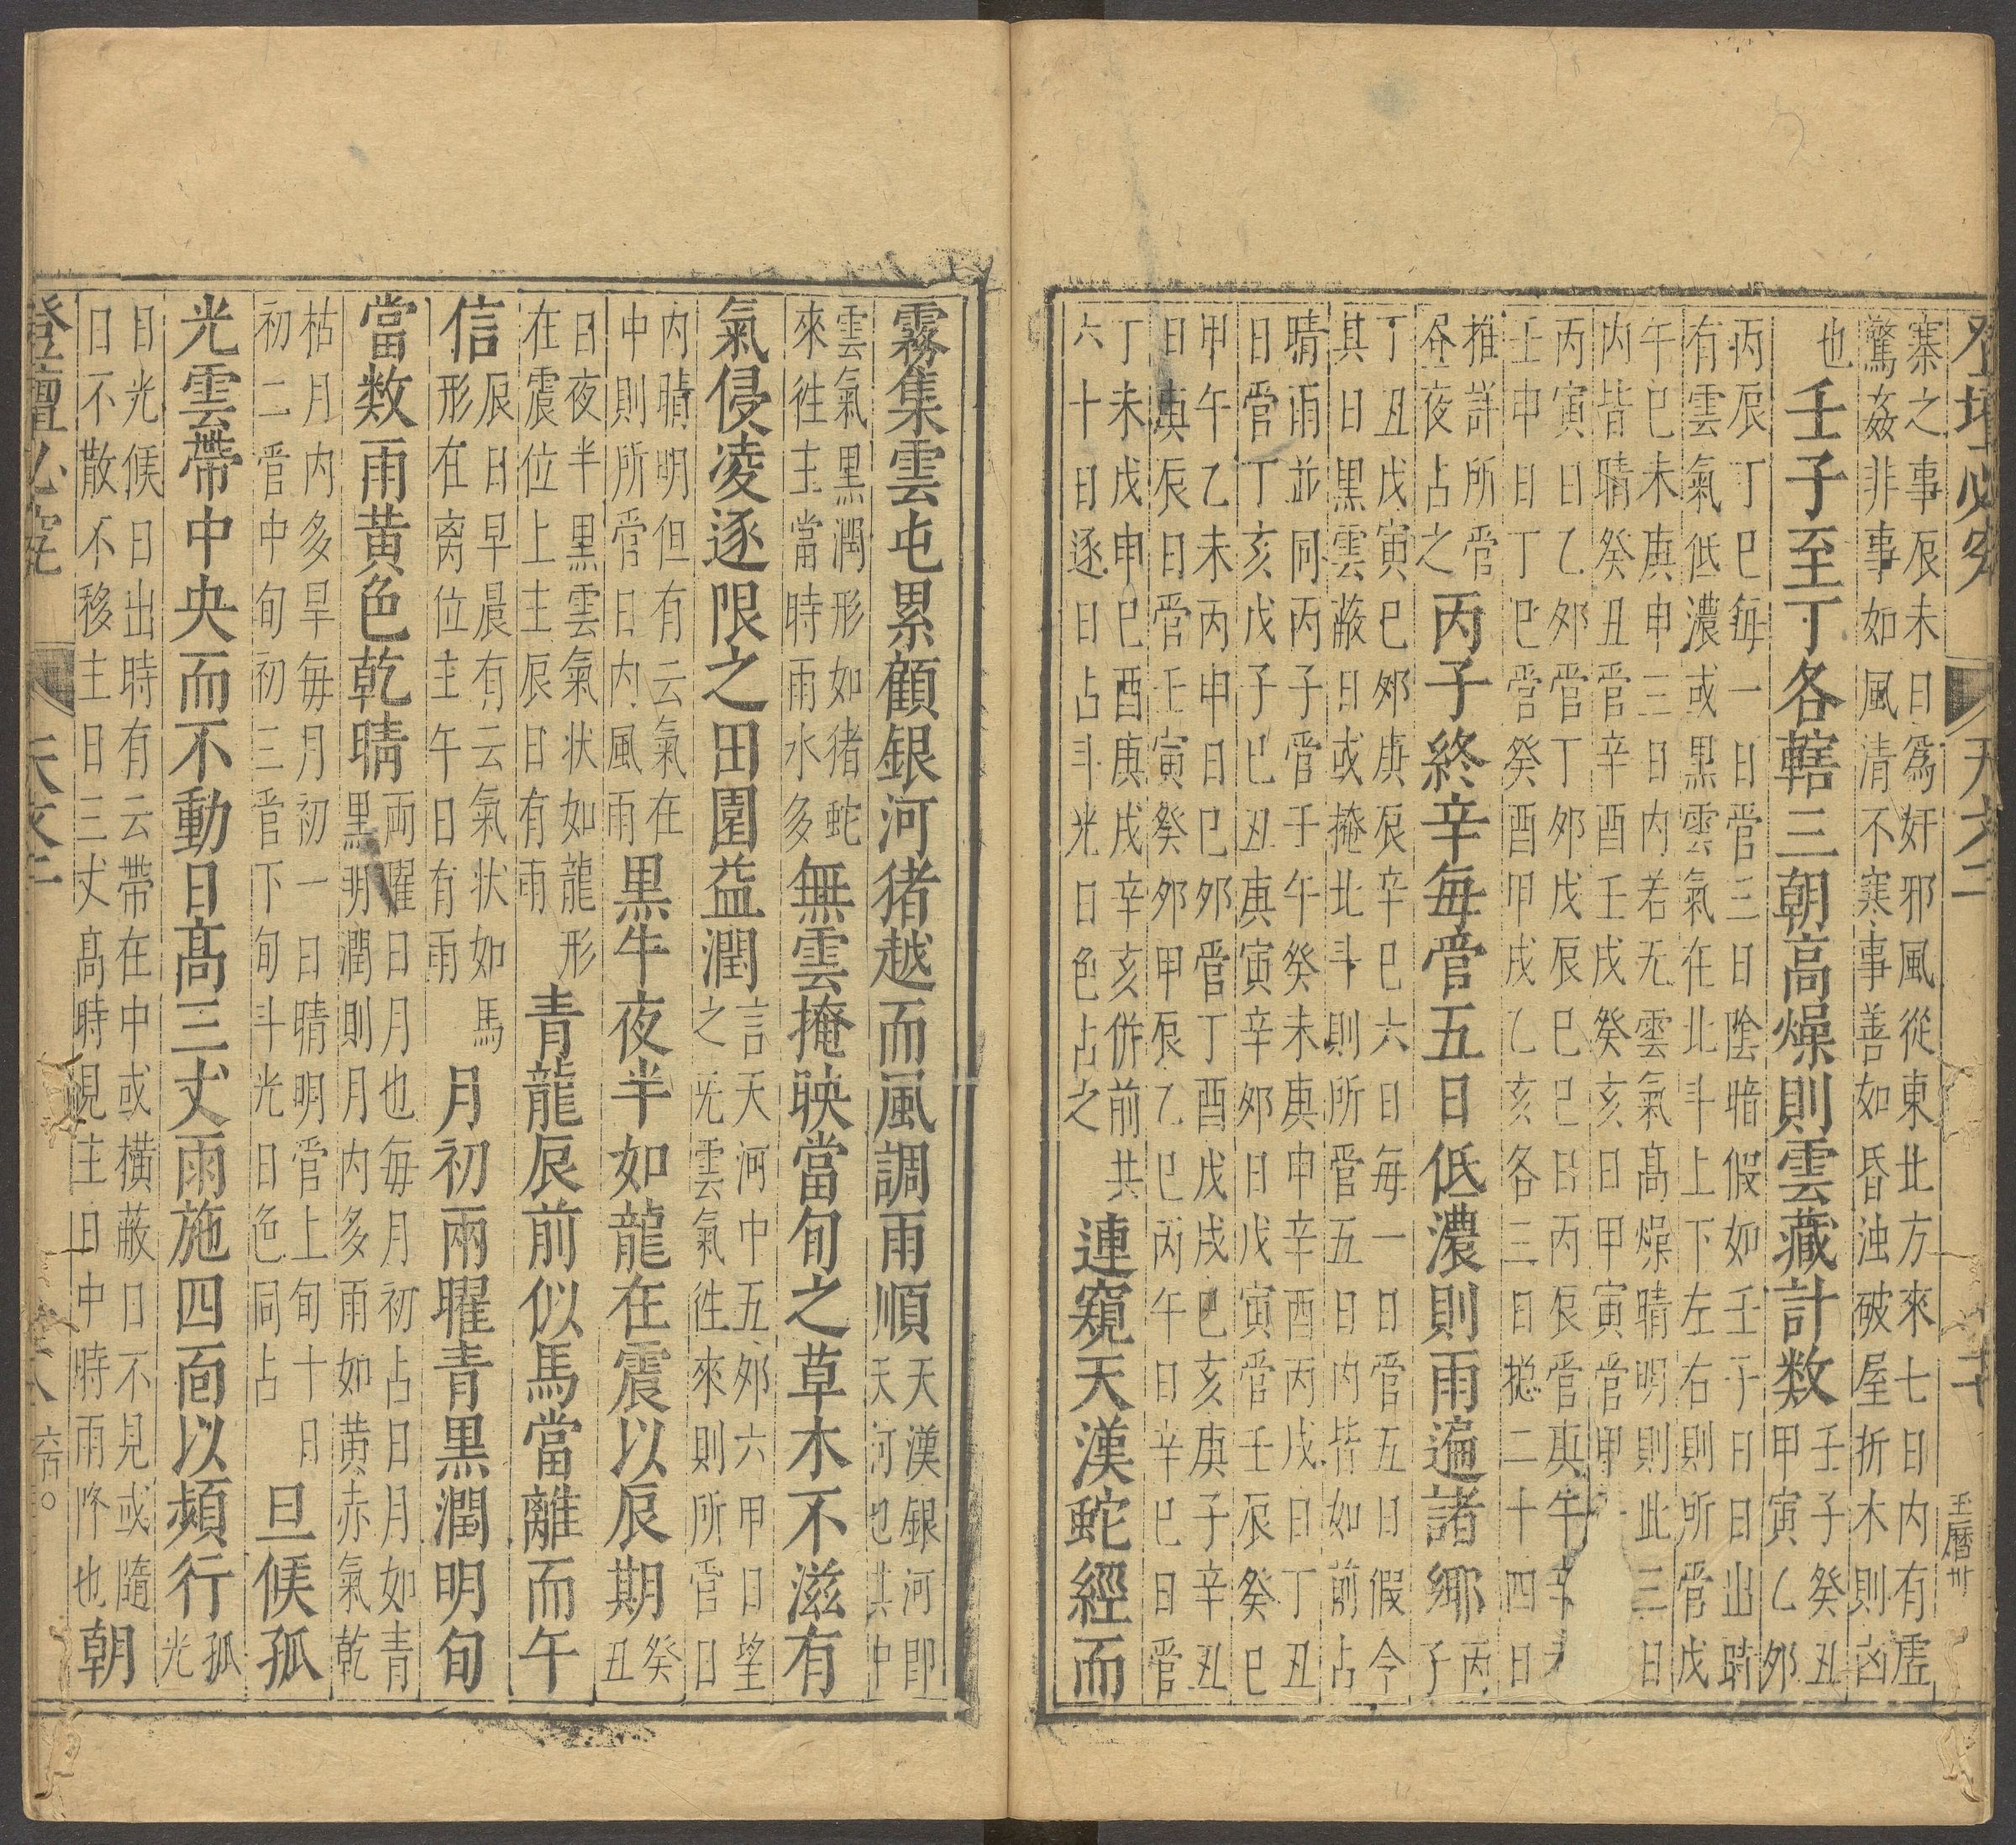 登壇必究 天文二 二十 王曆卅
寨之事辰未日為奸邪風從東北方來七日内有虛
驚姦非事如風清不寒事善如昏浊破屋折木則凶
也 壬子至丁各轄三朝高燥則雲藏計数 壬子癸丑
甲寅乙夘
丙辰丁巳每一日管三日陰暗假如壬子日日出時
有雲氣低濃或黑雲氣在北斗上下左右則所管戊
午巳未庚申三日内若无雲氣高燥晴明則此三日
内皆晴癸丑管辛酉壬戌癸亥日甲寅管甲
丙寅日乙夘管丁夘戊辰巳巳日丙辰管庚午辛
壬申日丁巳管癸酉甲戌乙亥各三日捴二十四日
推詳所管
仝夜占之 丙子終辛每管五日低濃則雨遍諸鄉 丙
子
丁丑戊寅巳夘庚辰辛巳六日每一日管五日假今
其日黑雲蔽日或掩北斗則所管五日内皆如前占
晴雨並同丙子管壬午癸未庚申辛酉丙戌日丁丑
日管丁亥戊子巳丑庚寅辛夘日戊寅管壬辰癸巳
甲午乙未丙申日巳夘管丁酉戊戌巳亥庚子辛丑
日庚辰日管壬寅癸夘甲辰乙巳丙午日辛巳日管
丁未戊申巳酉庚戌辛亥併前共
六十日逐日占斗光日色占之 連窺天漢蛇經而
霧集雲屯累顧銀河猪越而風調雨順 天漢銀河即
天河也其中
雲氣黑潤形如猪蛇
來徃主當時雨水多 無雲掩映當旬之草木不滋有
氣侵凌逐限之田園益潤 言天河中五夘六甲日望
之无雲氣徃來則所管日
内晴明但有云氣在
中則所管日内風雨 黒牛夜半如龍在震以辰期 癸
丑
日夜半黒雲氣状如龍形
在震位上主辰日有雨 青龍辰前似馬當離而午
信 辰日早晨有云氣状如馬
形在离位主午日有雨 月初兩曜青黒潤明旬
當数雨黄色乾晴 両曜日月也每月初占日月如青
黒明潤則月内多雨如黄赤氣乾
枯月内多旱每月初一日晴明管上旬十日
初二管中旬初三管下旬斗光日色同占 旦候孤
光雲帶中央而不動日髙三丈雨施四面以頻行 孤
光
日光候日出時有云帶在中或横蔽日不見或隨
日不散不移主日三丈髙時見主日中時雨降也 朝
登壇必究 天文二 六百〇